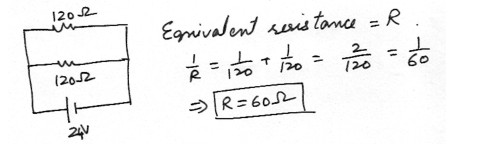 120Ω
120Ω
24V
Equivalent resistance = R.
1/R = 1/120 + 1/120 = 2/120 = 1/60
⇒ R = 60Ω